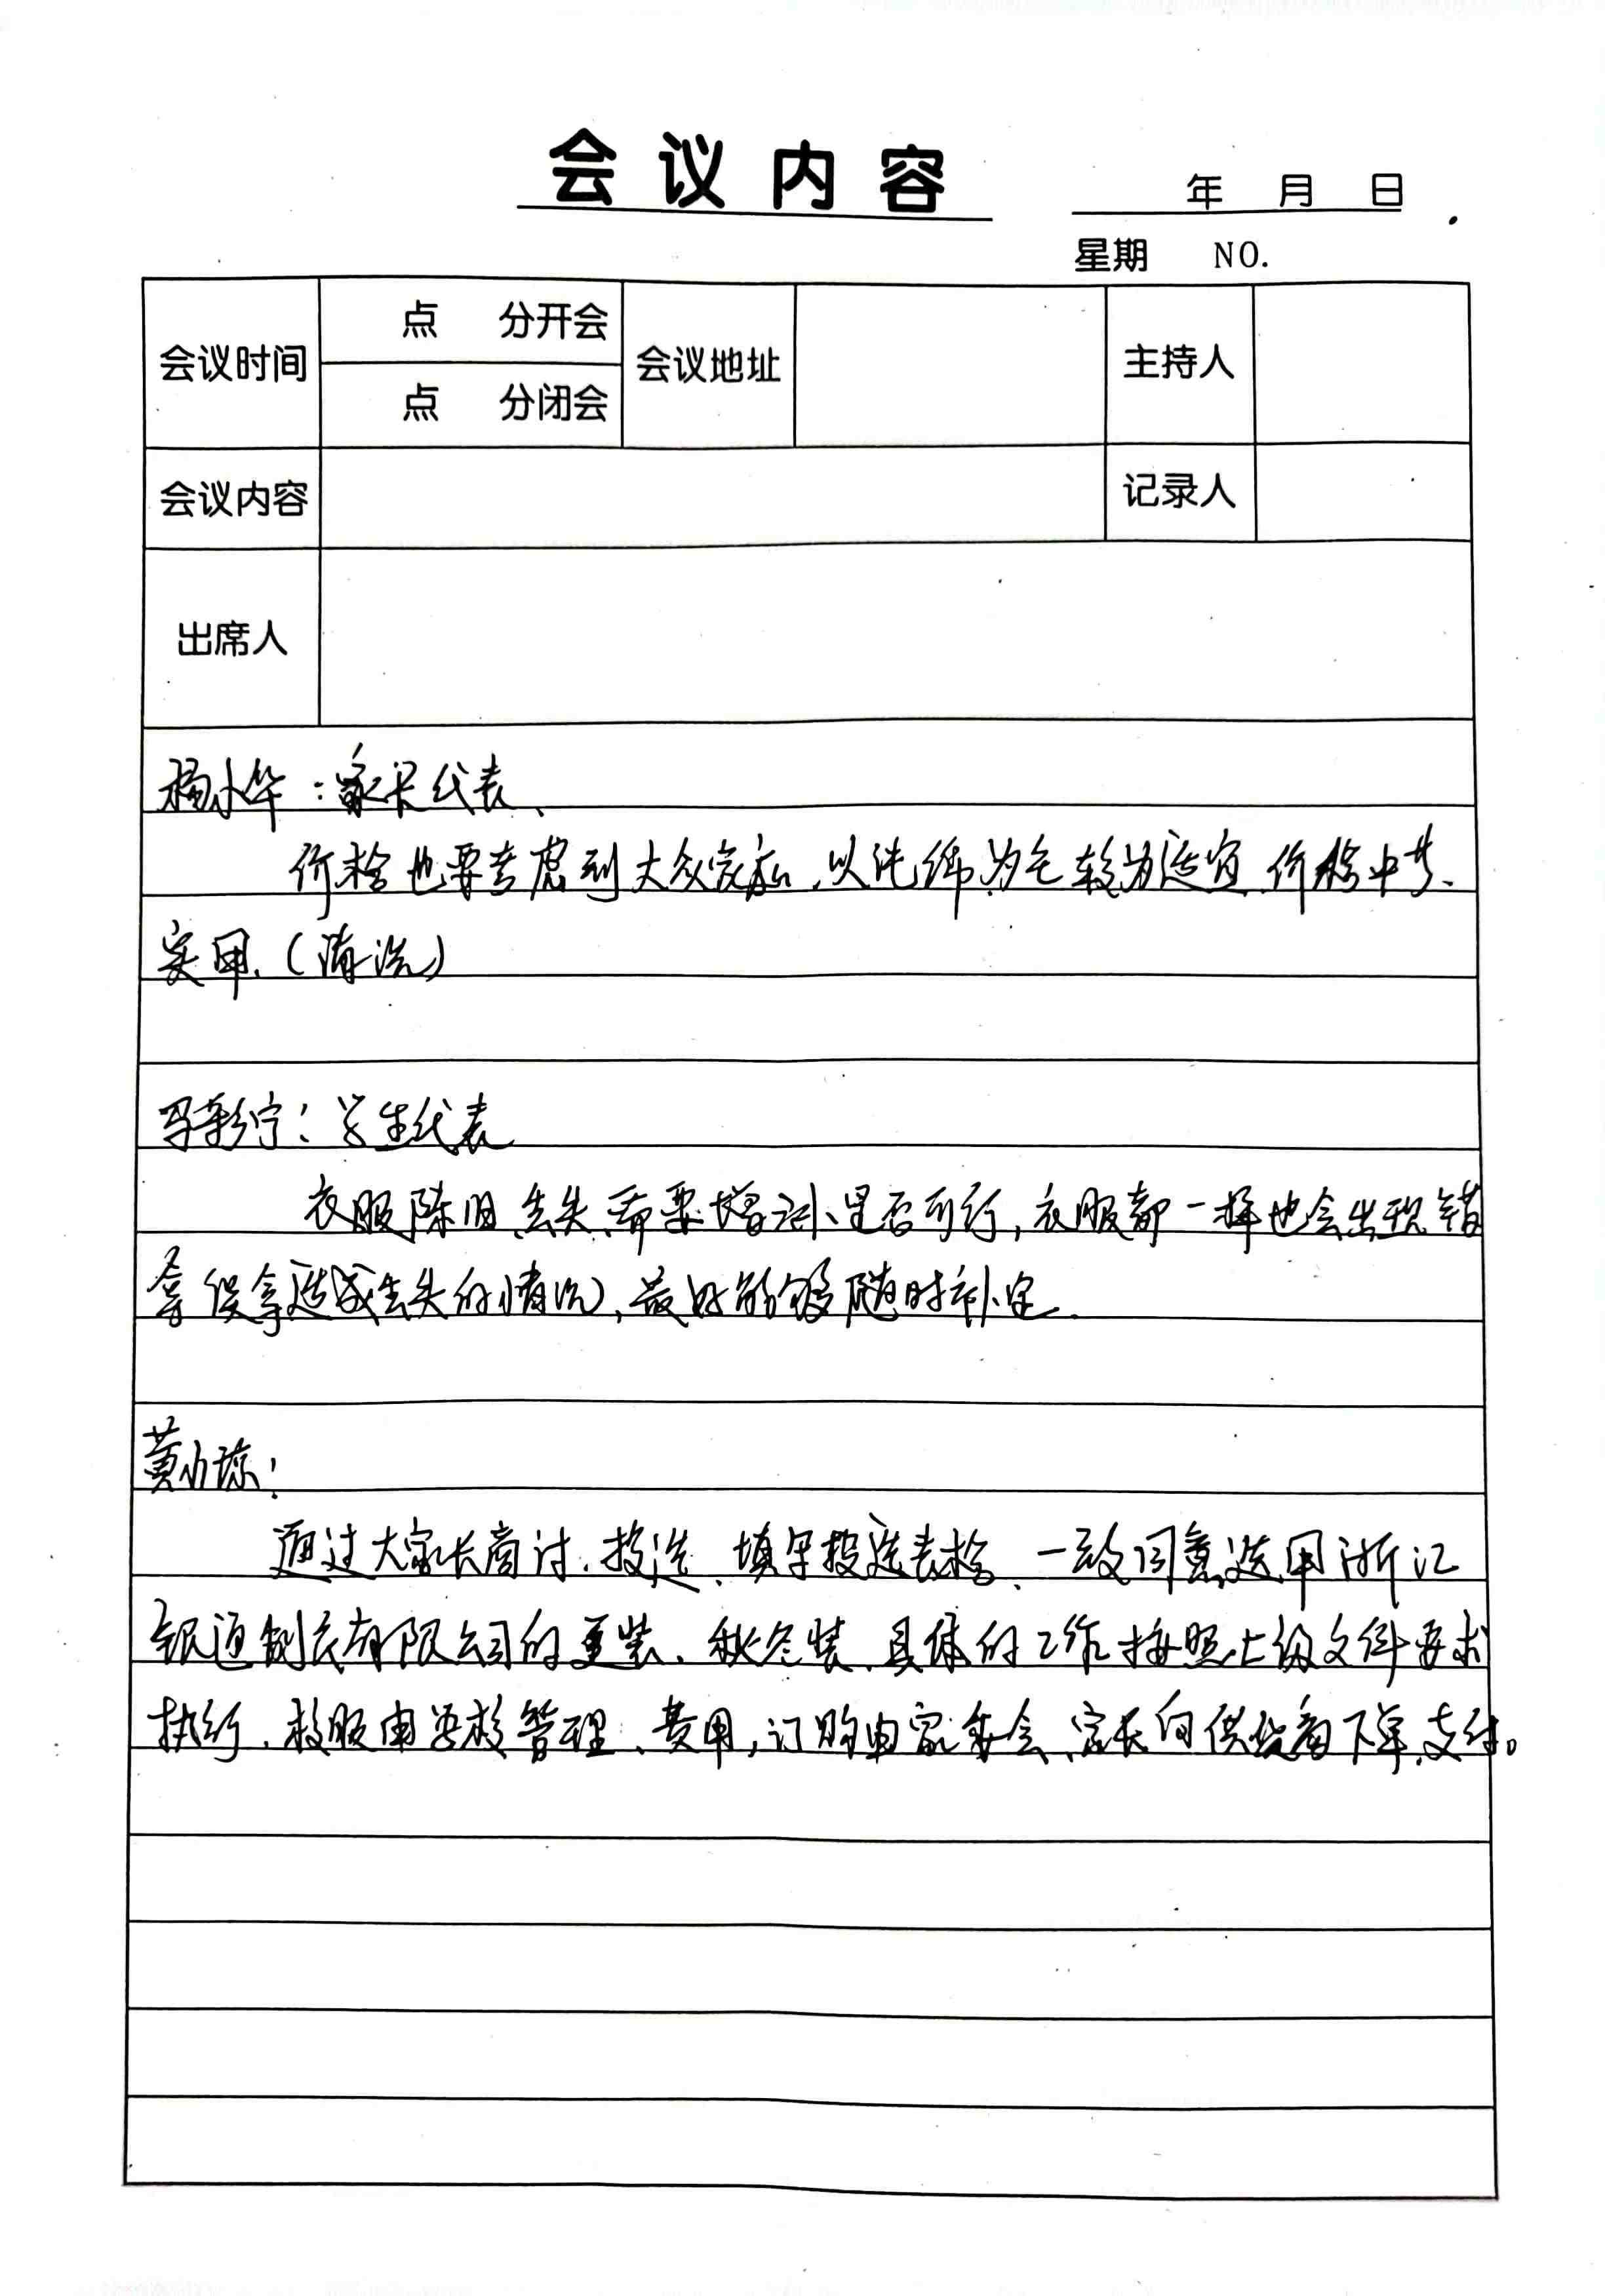 会议内容
年 月 日
星期 NO.
会议时间 点 分开会 会议地址 主持人
点 分闭会
会议内容 记录人
出席人
杨小华：家长代表、
价格也要考虑到大众家庭，以纯棉为主较为适宜，价格中等、
实用.（清洗）
马彩宁：学生代表
衣服陈旧、丢失、需要增订、是否可行，衣服都一样也会出现错
拿误拿造成丢失的情况，最好能够随时补定.
黄小琼：
通过大家长商讨、投选、填写投选表格、一致同意选用浙江
银通制衣有限公司的夏装、秋冬装、具体的工作按照上级文件要求
执行、校服由学校管理、费用，订购由家委会、家长向供货商下单、支付。